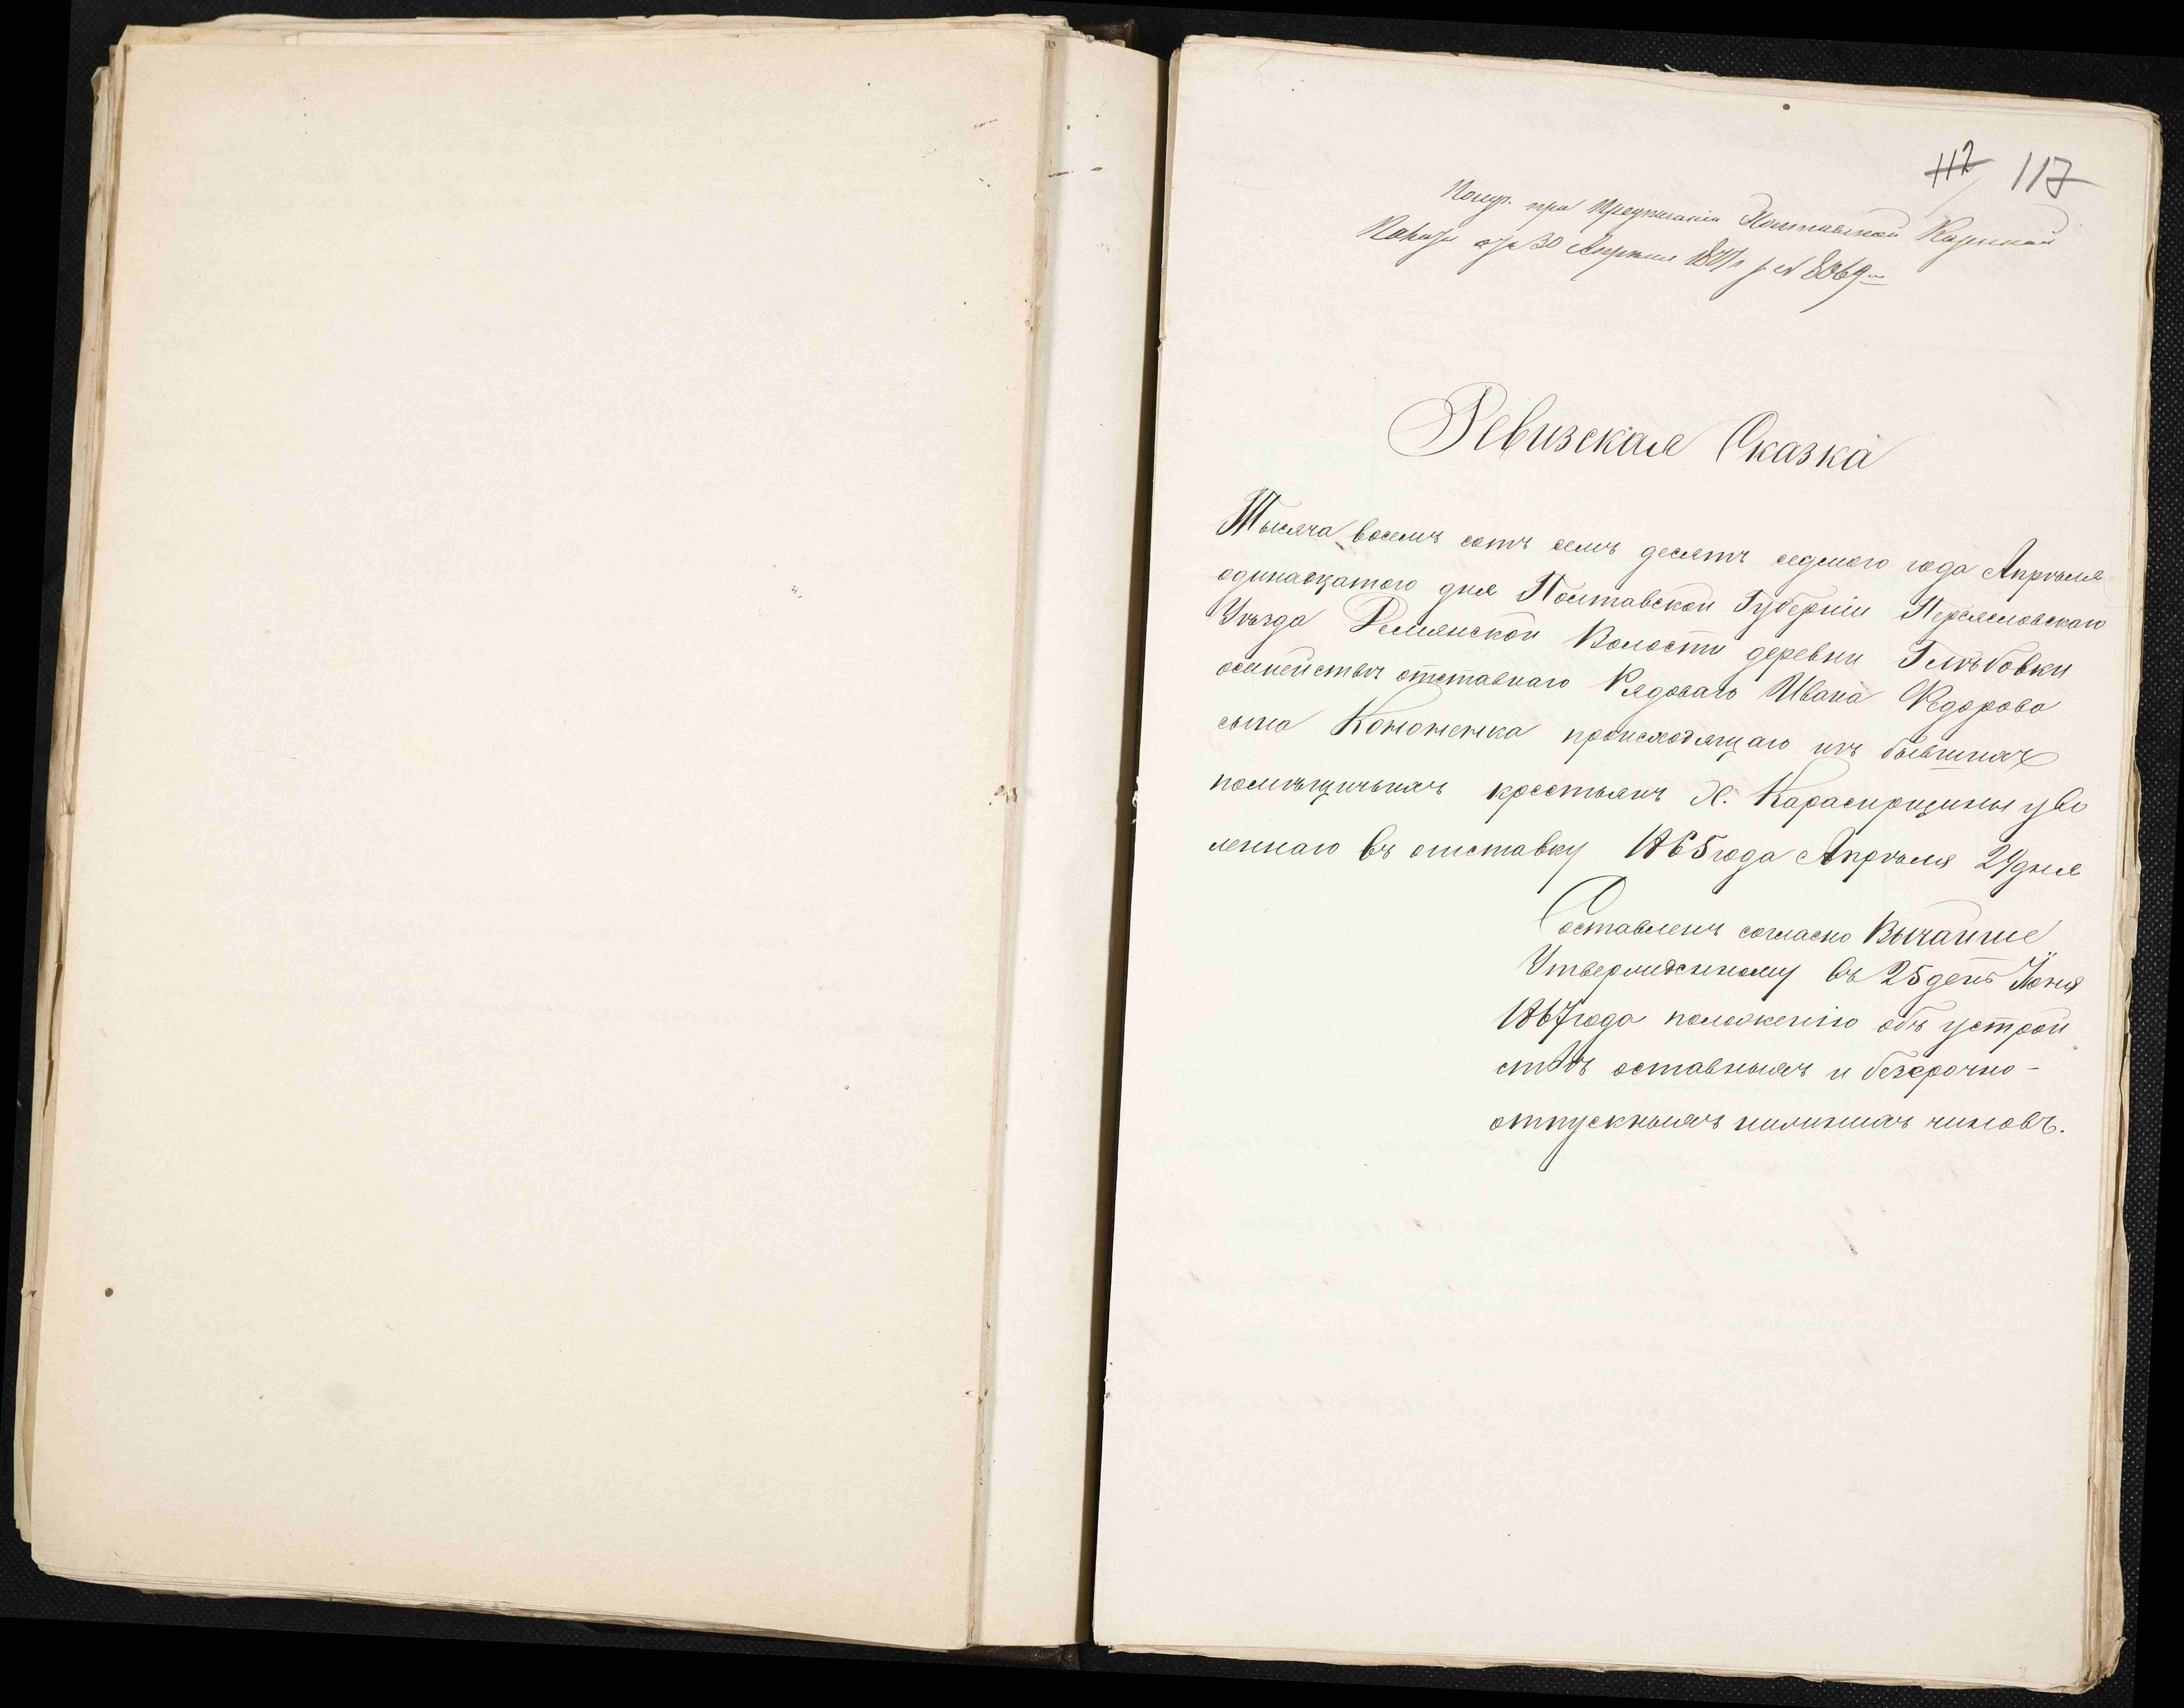 112 117
Получ. при Предписаніи Полтавской Казенной
Палаты отъ 30 Апреля 1877 г за № 8069
Ревизская Сказка
Тысяча восемъ сотъ семъ десятъ седмого года Апрѣля
одинадцатого дня Полтавской Губерніи Переясловскаго
Уѣзда Демянской Волости деревни Глѣбовки
осемействе отставнаго Рядоваго Ивана Федорова
сына Кононенка происходящаго изъ бывшихъ
помѣщичьихъ крестьянъ Х. Карасирщины уво
леннаго въ отставку 1865 года Апрѣля 29 дня
Составленъ согласно Высчайше
Утвержденному въ 25 день Іюня
1867 года положенію объ устрой
ствѣ оставныхъ и безсрочно-
отпускныхъ нижнихъ чиновъ.